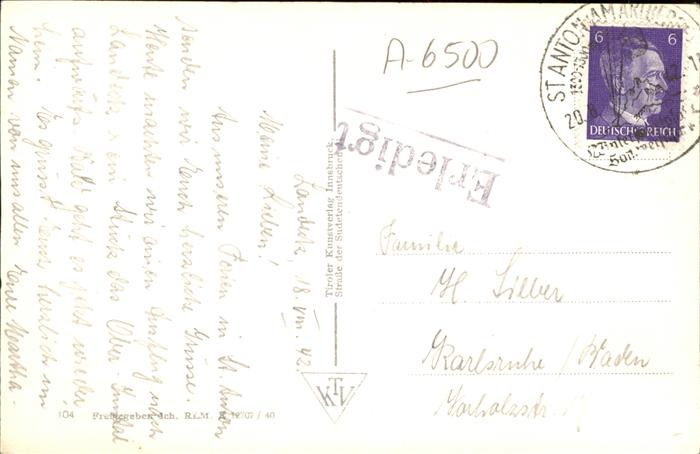 Landeck, 18. VIII. 42.
Meine Lieben!
Aus unseren Ferien in St. Anton
senden wir Euch herzliche Grüsse.
Heute machten wir einen Ausflug nach
Landeck u. ein Stück das Ober-Inntal
aufwärts. Bald geht es jetzt wieder
heim. Es grüsst Euch herzlich im
Namen von uns allen Eure Martha.
104 Freigegeben dch. RLM. 12707/40
Tiroler Kunstverlag Innsbruck,
Straße der Sudetendeutschen
KTV
A-6500
Erledigt
ST ANTON AM ARLBERG
20.8
6 6
DEUTSCHES REICH
Familie
H. Silber
Karlsruhe / Baden
Vorholzstr.